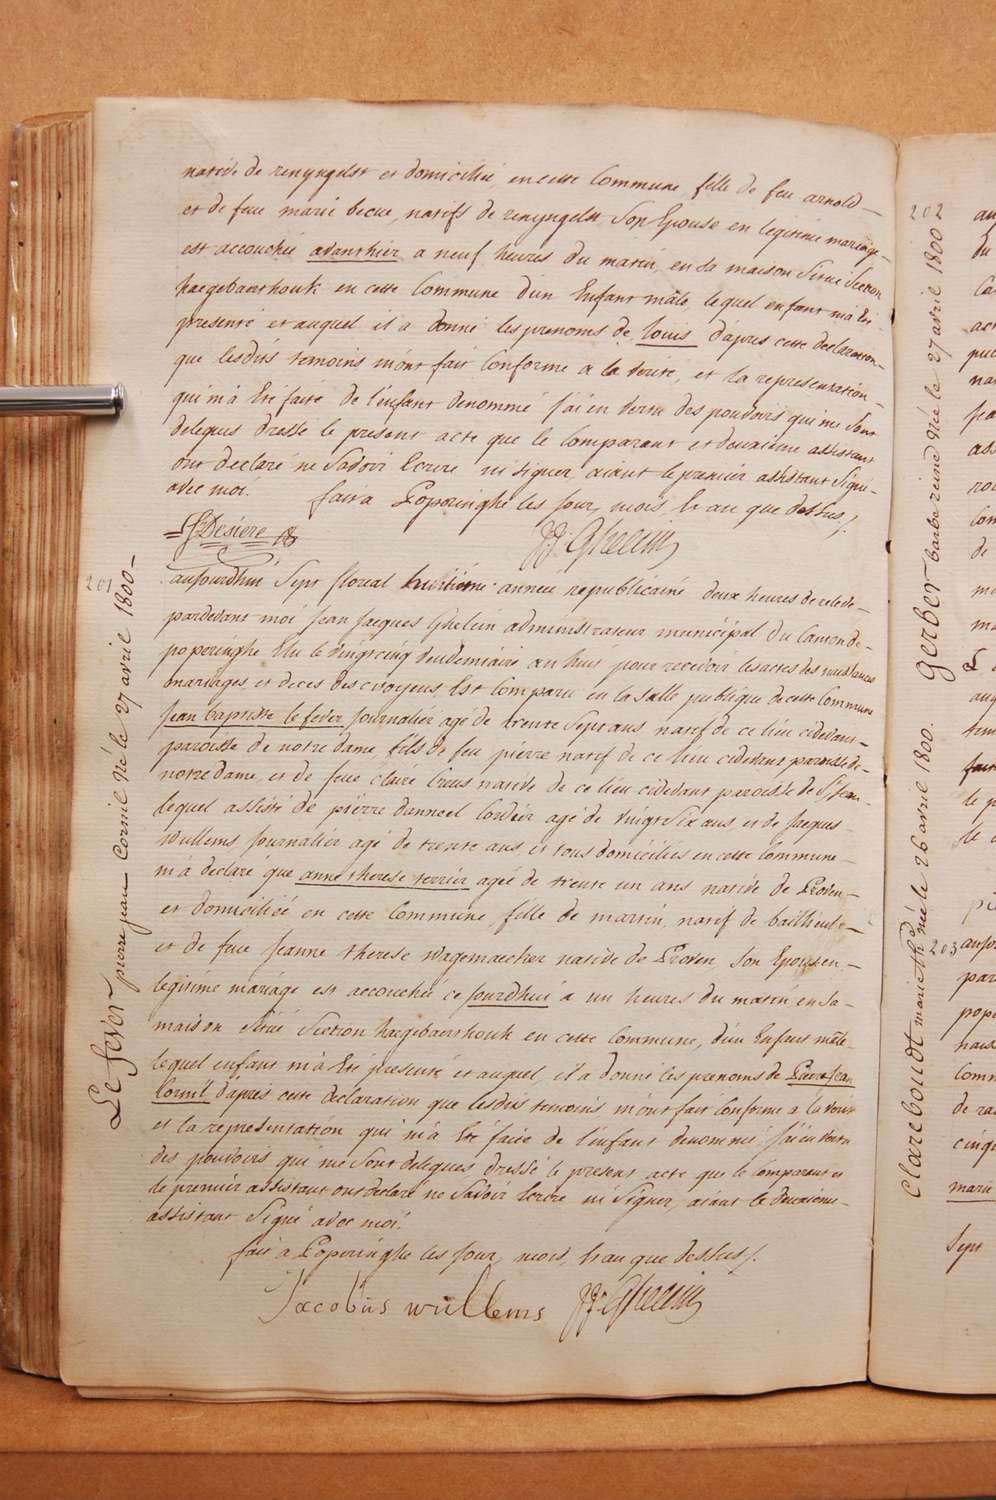 native de renyngelst et domiciliée en cette Commune, fille de feu arnold
et de feue marie becue, natifs de renyngelst Son Epouse en legitime mariage
est accouchée avanthier a neuf heures du matin, en sa maison Situé Section
haegebaerthouk en cette Commune d'un Enfant mâle, lequel enfant m'a été
presenté et auquel il a donné les prenoms de Louis d'apres cette declaration
que lesdits temoins m'ont fait Conforme a la verité, et la representation
qui m'a Eté faite de l'enfant denommé j'ai en vertu des pouvoirs qui me Sont
delegués dressé le present acte que le Comparant et deuxieme assistant
ont declaré ne Savoir Ecrire ni signer, aiant le premier assistant Signé
avec moi. fait a Poperinghe les jour, mois, & an que dessus /.
Desiere JJ: Ghelein
201
aujourdhui Sept floreal huitieme année republicaine deux heures de relevée
pardevant moi Jean Jacques Ghelein administrateur municipal du Canton de
poperinghe Elu le vingtcinq vendemiaire an huit pour recevoir les actes des naissances
mariages et deces des citoyens, Est Comparu en la Salle publique de cette Commune
Jean baptiste le fever Journalier agé de trente Sept ans natif de ce lieu cidevant
paroisse de notre dame, fils de feu pierre natif de ce lieu cidevant paroisse de
notre dame, et de feue claire native de ce lieu cidevant paroisse de St Jean
lequel assisté de pierre Cordier agé de vingt Six ans, et de Jacques
Wullems Journalier agé de trente ans et tous domiciliés en cette Commune
m'a declaré que anne therese terrier agée de trente un ans native de Proven
et domiciliée en cette Commune, fille de martin, natif de baillieul
et de feue Jeanne therese wagemaecker native de Proven, Son Epouse en
legitime mariage est accouchée ce jourdhui a un heures du matin en sa
maison Situé Section haegebaerthouk en cette Commune, d'un Enfant mâle
lequel enfant m'a Eté presenté et auquel il a donné les prenoms de Pierre Jean
Cornil d'apres cette declaration que lesdits temoins m'ont fait Conforme a la verité
et la representation qui m'a Eté faite de l'enfant denommé j'ai en vertu
des pouvoirs qui me Sont delegués dressé le present acte que le Comparant et
le premier assistant ont declaré ne Savoir Ecrire ni Signer, aiant le deuxieme
assistant Signé avec moi.
fait a Poperinghe les jour, mois, & an que dessus /.
Jacobus wullems JJ: Ghelein
Le fever pierre jean Cornil Né le 27 avril 1800
202
Gerber barbe reine Née le 27 avril 1800
203
Clareboudt marie Née le 26 avril 1800.